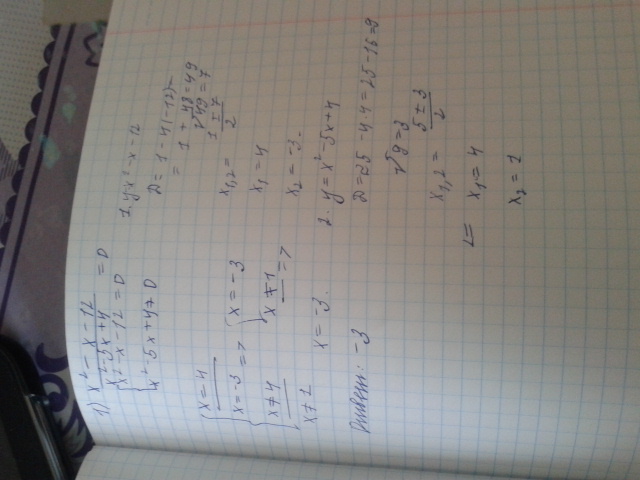 1) x² - x - 12
x² - 5x + 4 = 0
x² - x - 12 = 0
x² - 5x + 4 ≠ 0
x = 4
x = -3 => x = -3
x ≠ 4
x ≠ 1 x ≠ 1 =>
x = -3.
Ответ: -3
1. y = x² - x - 12
D = 1 - 4(-12) =
= 1 + 48 = 49
√49 = 7
x₁,₂ = 1 ± 7
2
x₁ = 4
x₂ = -3.
2. y = x² - 5x + 4
D = 25 - 4·4 = 25 - 16 = 9
√9 = 3
x₁,₂ = 5 ± 3
2
x₁ = 4
x₂ = 1